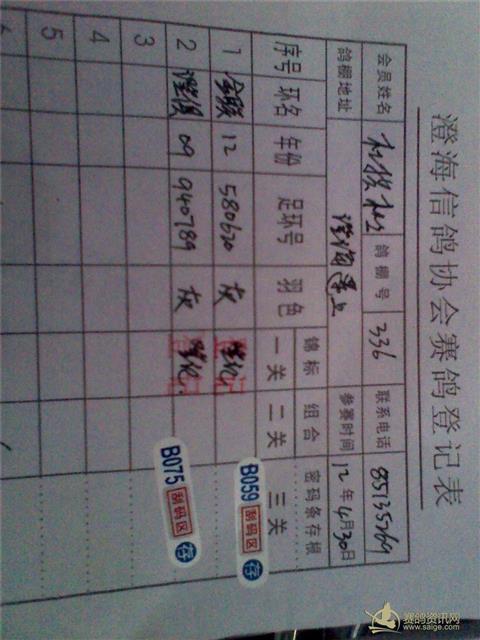 澄海信鸽协会赛鸽登记表
会员姓名 鸽棚号 336 联系电话 85135269
鸽棚地址 澄海 参赛时间 12年4月30日
序号 环名 年份 足环号 羽色 锦标 组合 密码条存根
一关 二关 三关
1 全联 12 580620 灰 登记 B059 刮码区 存
2 澄 09 940789 灰 登记 B075 刮码区 存
3
4
5
赛鸽资讯网
www.saige.com